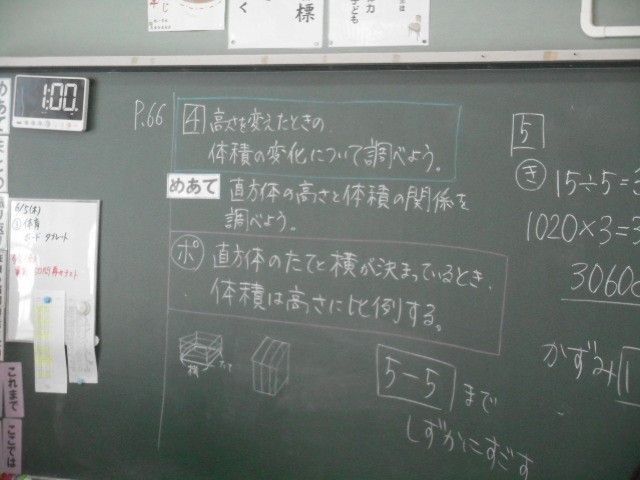 P.66
4 高さを変えたときの、
体積の変化について調べよう。
めあて 直方体の高さと体積の関係を
調べよう。
ポ 直方体のたてと横が決まっているとき、
体積は高さにヒと例する。
横 たて
5-5 まで
しずかにすごす
5
き 15÷5=3
1020×3=3
3060
かずみ 1
1:00
標
く
子ども
6/5(木)
体育
ボード タブレット
これまで
ここでは